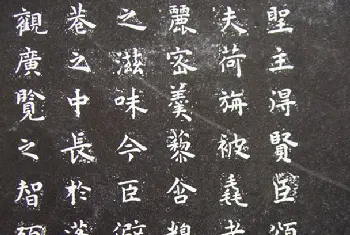 聖主淂賢臣頌
夫荷旃被毳者
麗密羹藜含糗
之滋味今臣僻
巷之中長於蓬
觀廣覽之智